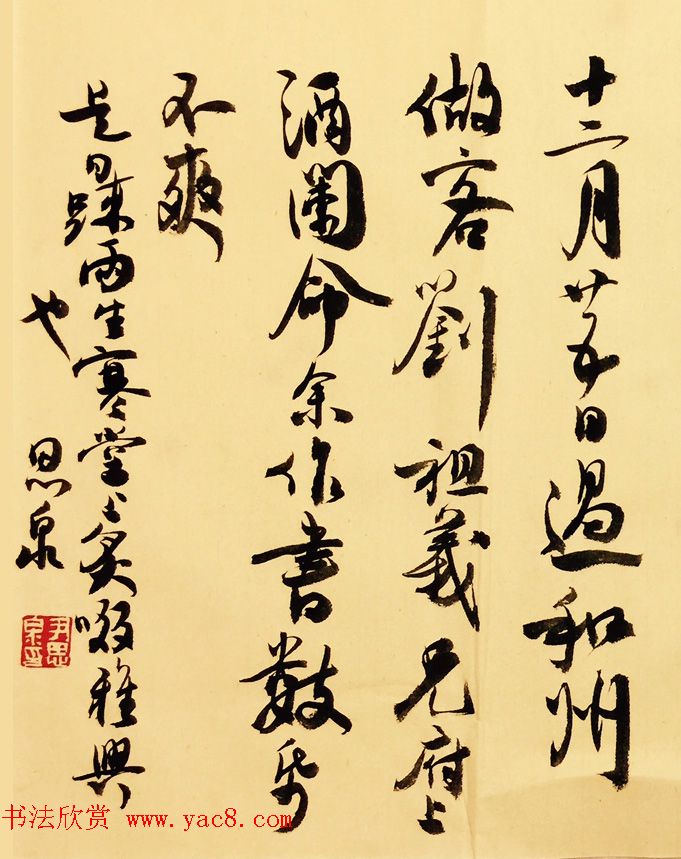 十二月廿五日過和州
做客劉祖義兄府上
酒闌命余作書數帋
不爽
是日踈雨生寒堂上炙啜雅興
也
思泉
尹思泉印
书法欣赏 www.yac8.com